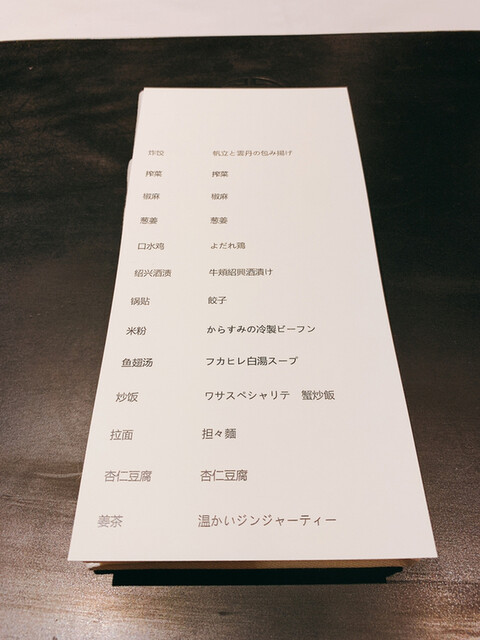 炸饺 帆立と雲丹の包み揚げ
搾菜 搾菜
椒麻 椒麻
葱姜 葱姜
口水鸡 よだれ鶏
绍兴酒渍 牛頬紹興酒漬け
锅贴 餃子
米粉 からすみの冷製ビーフン
鱼翅汤 フカヒレ白湯スープ
炒饭 ワサスペシャリテ 蟹炒飯
拉面 担々麺
杏仁豆腐 杏仁豆腐
姜茶 温かいジンジャーティー